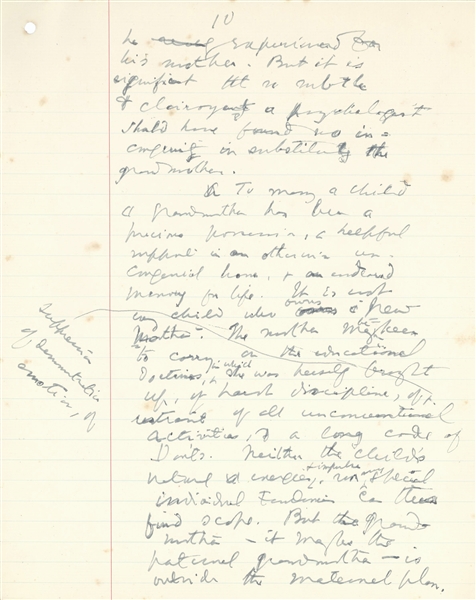 10
he experienced for
his mother. But it is
significant tht so subtle
& clairvoyant a psychologist
should have found no in=
congruity in substituting the
grandmother.
To many a child
a grandmother has been a
precious possession, a helpful
support in an otherwise un-
congenial home, & an endeared
memory for life. It is not
every child who owns a "New
Mother". The mother may be keen
to carry on the educational
doctrines, in which she was herself brought
up, of harsh discipline, of
restraint of all unconventional
activities, & a long code of
Don'ts. Neither the child's
natural energies, & impulses nor special
individual tendencies can then
find scope. But the grand-
mother – it may be the
paternal grandmother – is
outside the maternal plan.
suppression
of demonstrative
emotion, of